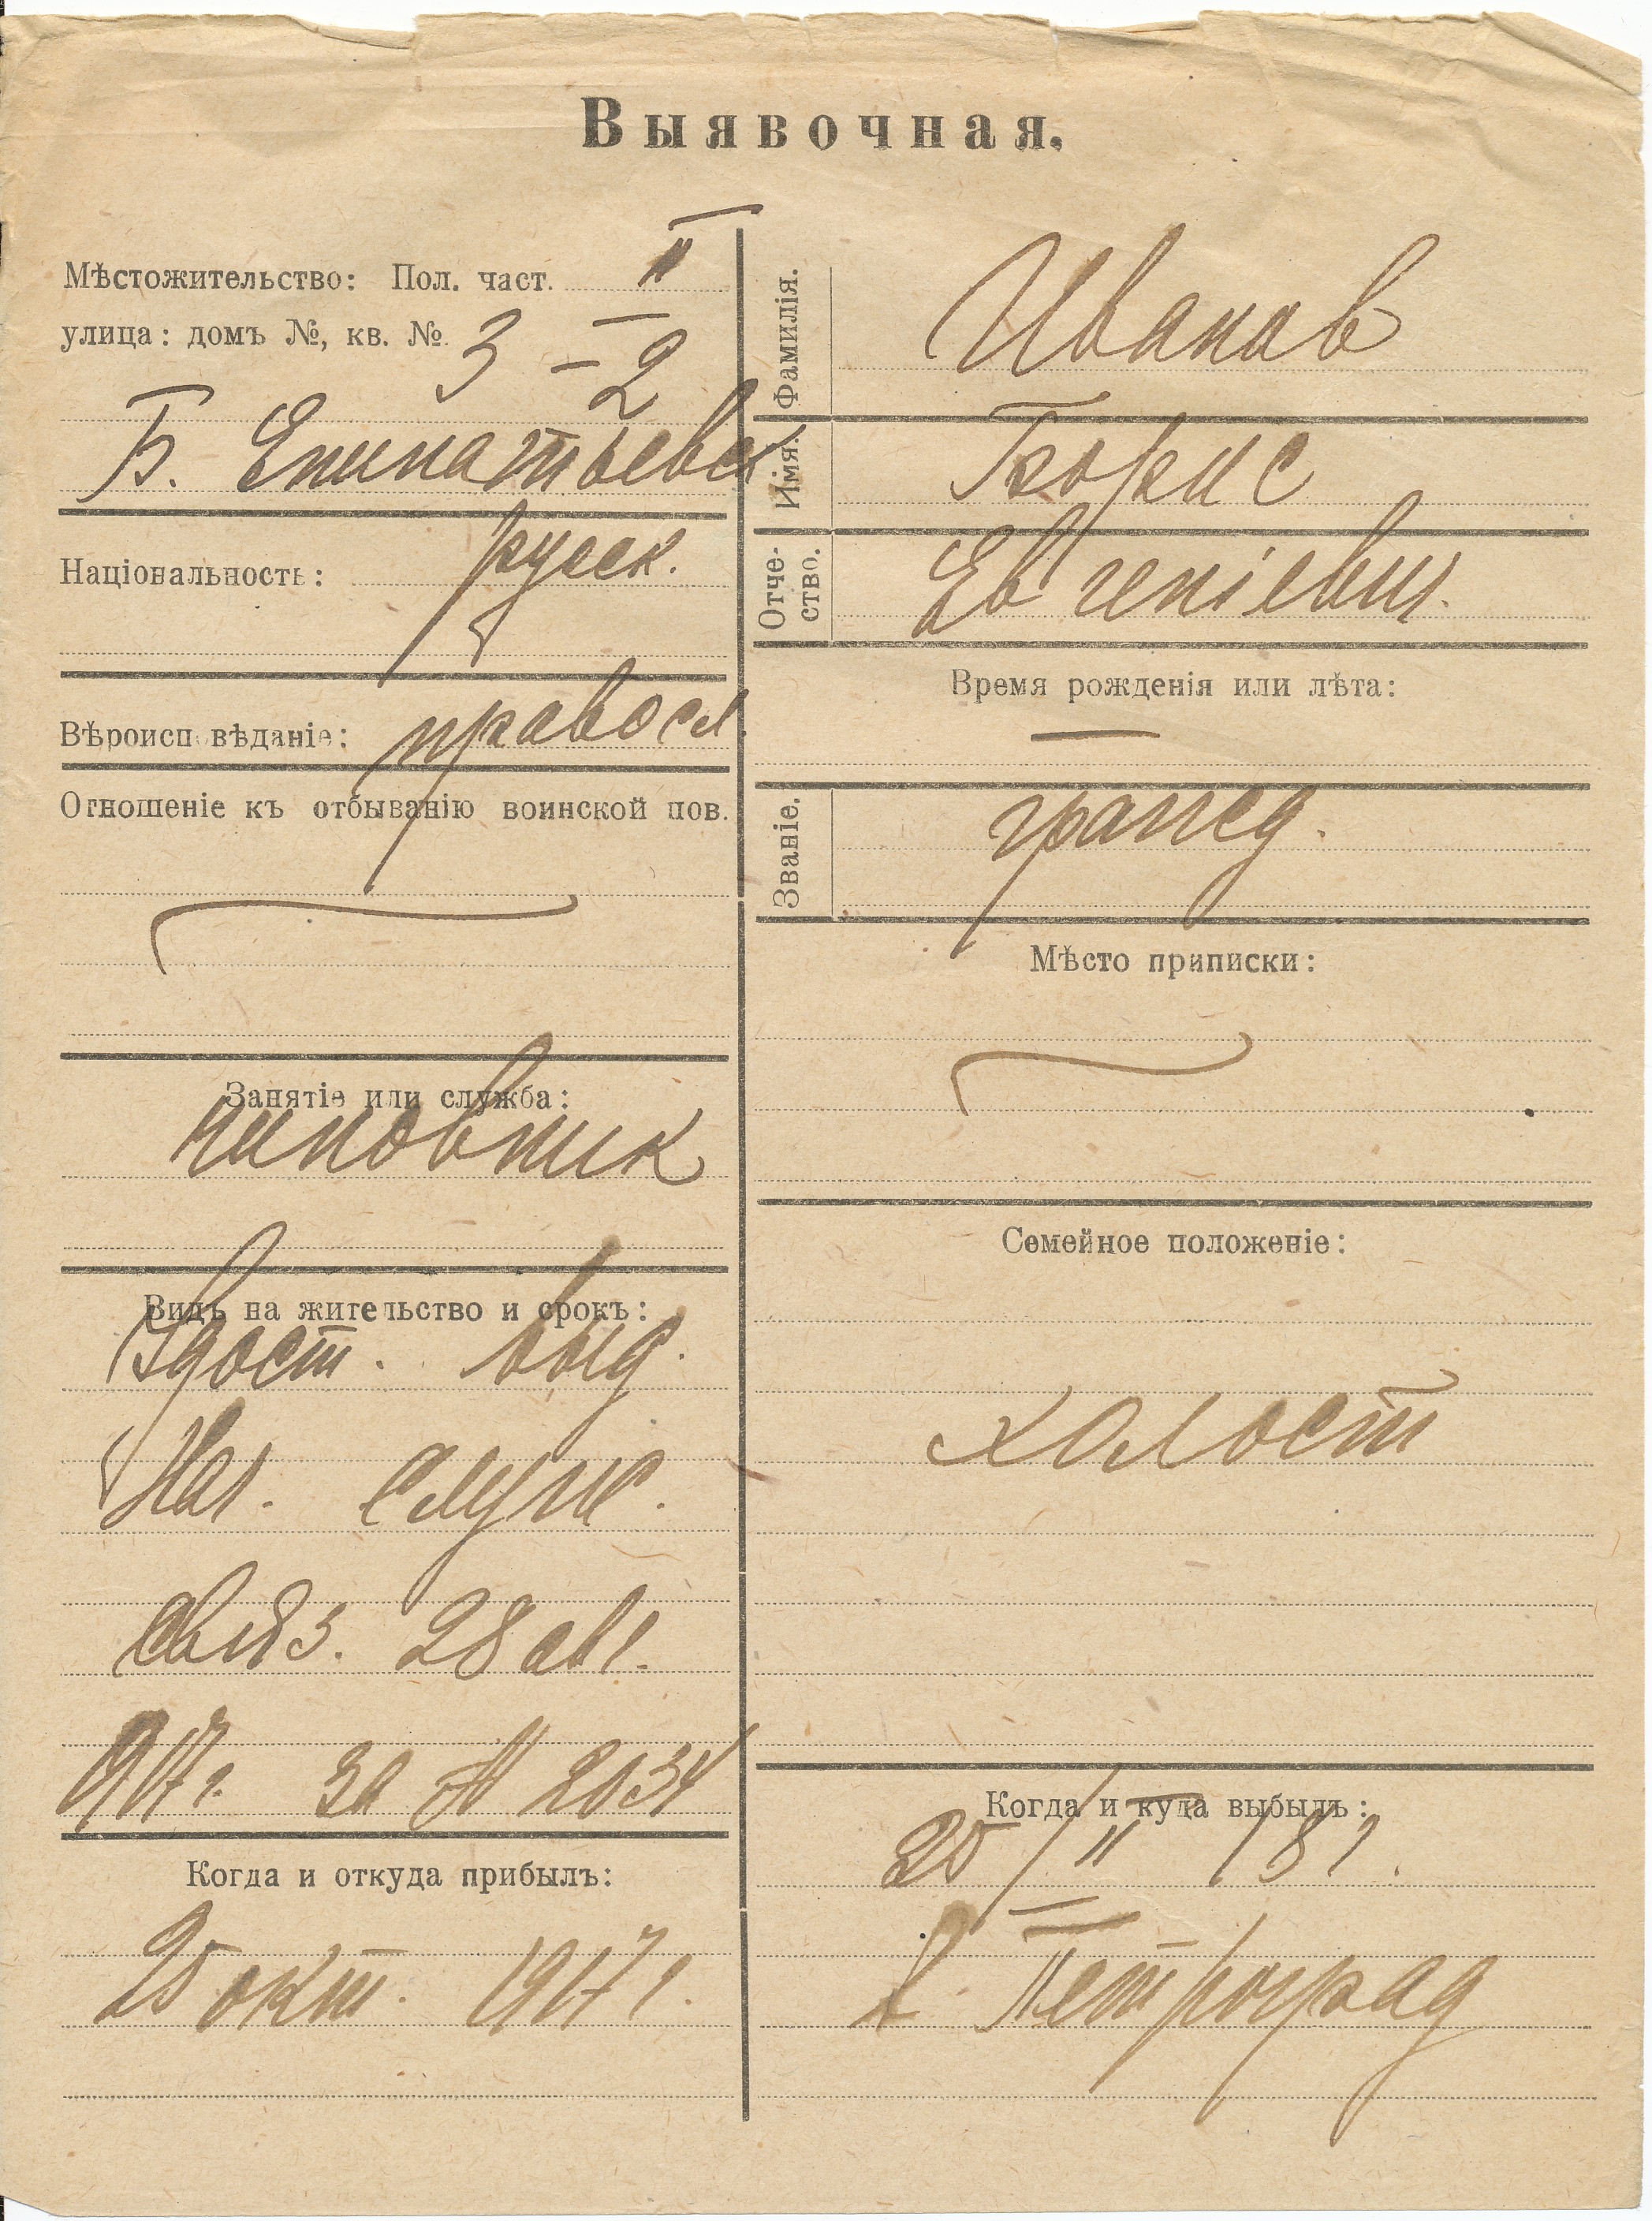 Выявочная.
Мѣстожительство: Пол. част. II
улица: домъ №, кв. № 3 – 2
Б. Епипатьевск
Національность: русск.
Вѣроисповѣданіе: правосл.
Отношеніе къ отбыванію воинской пов.
Занятіе или служба:
чиновник
Видъ на жительство и срокъ:
Удост. выд.
Нач. служ.
связ. 28 авг.
1917 г. за № 2034
Когда и откуда прибылъ:
25 окт. 1917 г.
Фамилія. Иванов
Имя. Борис
Отче-
ство. Евгеніевич.
Время рожденія или лѣта:
—
Званіе. гражд.
Мѣсто приписки:
Семейное положеніе:
холост
Когда и куда выбылъ:
25/II 18 г.
Петроград